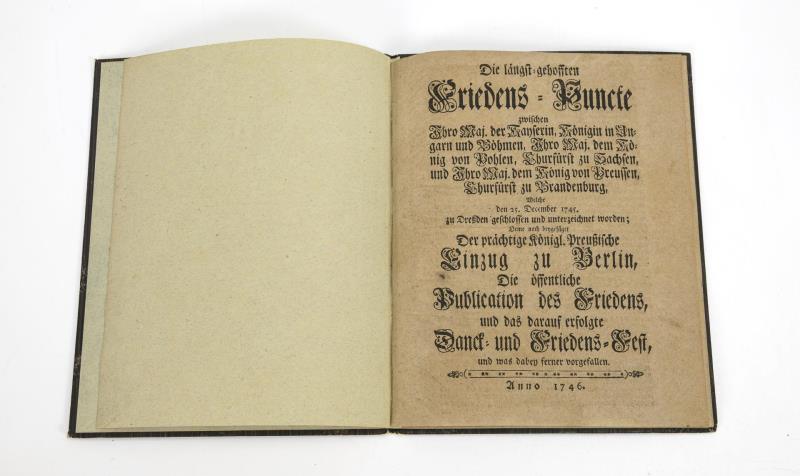 Die längst-gehofften
Friedens-Puncte
zwischen
Ihro Maj. der Kayserin, Königin in Un-
garn und Böhmen, Ihro Maj. dem Kö-
nig von Pohlen, Churfürst zu Sachsen,
und Ihro Maj. dem König von Preussen,
Churfürst zu Brandenburg,
Welche
den 25. December 1745.
zu Dreßden geschlossen und unterzeichnet worden;
Deme noch beygefüget
Der prächtige Königl. Preußische
Einzug zu Berlin,
Die öffentliche
Publication des Friedens,
und das darauf erfolgte
Danck- und Friedens-Fest,
und was dabey ferner vorgefallen.
Anno 1746.